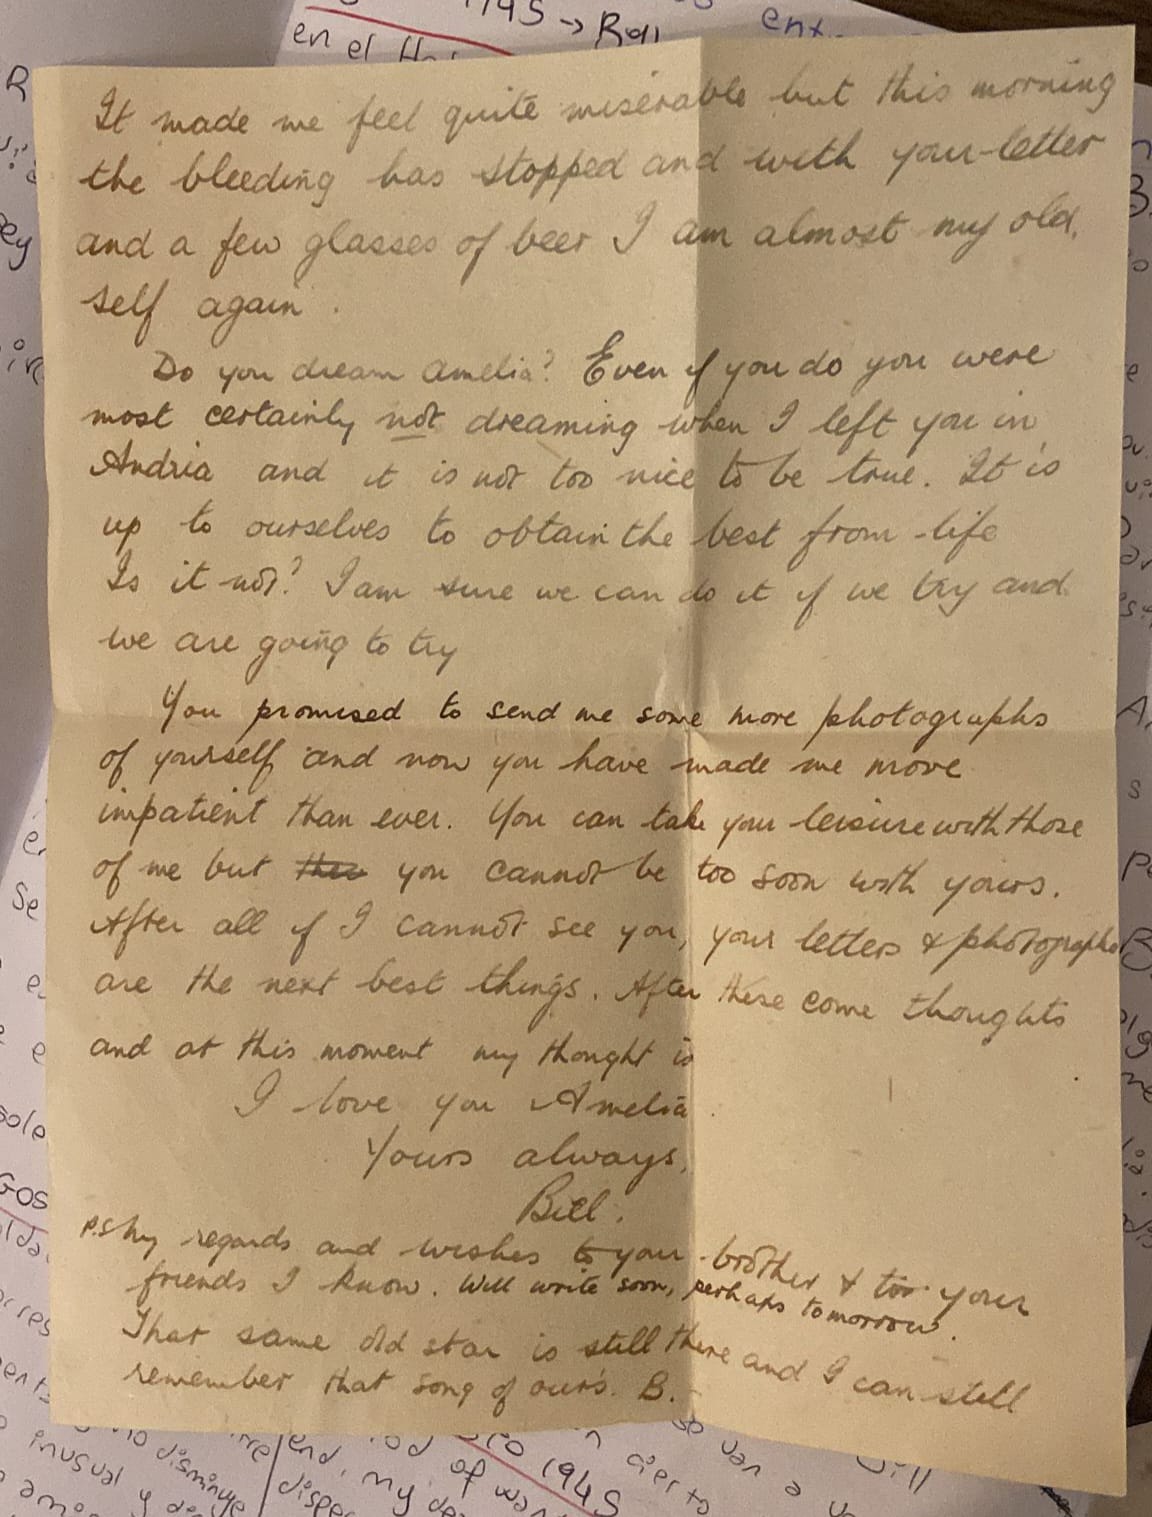 1945 → Bill
en el
It made me feel quite miserable but this morning
the bleeding has stopped and with your letter
and a few glasses of beer I am almost my old
self again.
Do you dream Amelia? Even if you do you were
most certainly not dreaming when I left you in
Andria and it is not too nice to be true. It is
up to ourselves to obtain the best from life
Is it not? I am sure we can do it if we try and
we are going to try
You promised to send me some more photographs
of yourself and now you have made me more
impatient than ever. You can take your leisure with those
of me but you cannot be too soon with yours.
After all if I cannot see you, your letters & photographs
are the next best things. After these come thoughts
and at this moment my thought is
I love you Amelia.
Yours always,
Bill.
P.S My regards and wishes to your brother & to your
friends I know. Will write soon, perhaps tomorrow.
That same old star is still there and I can still
remember that song of ours. B.
1945